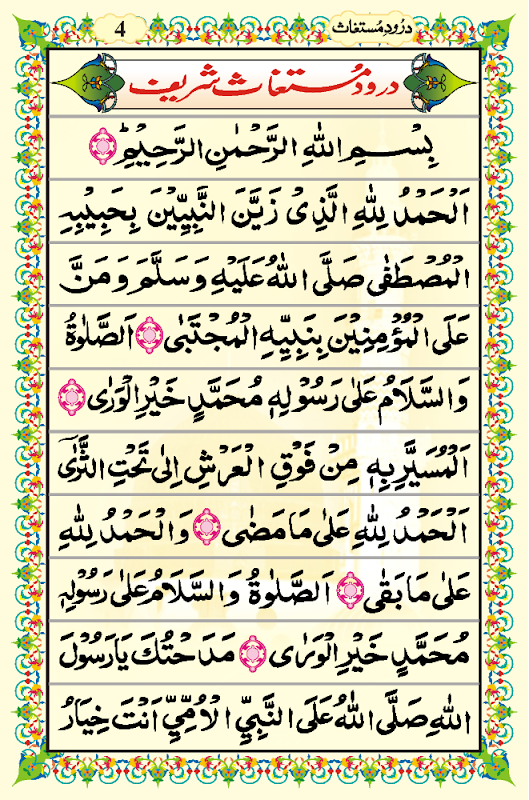 درُودِ مُستغاث
4
درود مُستغاث شریف
بِسْــمِ اللّٰهِ الرَّحْمٰنِ الرَّحِيْمِؕ
اَلْحَمْدُ لِلّٰهِ الَّذِىْ زَيَّنَ النَّبِيّٖنَ بِحَبِيْبِهِ
الْمُصْطَفٰى صَلَّى اللّٰهُ عَلَيْهِ وَسَلَّمَ وَمَنَّ
عَلَى الْمُؤْمِنِيْنَ بِنَبِيِّهِ الْمُجْتَبٰى اَلصَّلٰوةُ
وَالسَّلَامُ عَلٰى رَسُوْلِهٖ مُحَمَّدٍ خَيْرِ الْوَرٰى
اَلْمُسَيَّرِ بِهٖ مِنْ فَوْقِ الْعَرْشِ اِلٰى تَحْتِ الثَّرٰى
اَلْحَمْدُ لِلّٰهِ عَلٰى مَا مَضٰى وَالْحَمْدُ لِلّٰهِ
عَلٰى مَا بَقٰى اَلصَّلٰوةُ وَالسَّلَامُ عَلٰى رَسُوْلِهٖ
مُحَمَّدٍ خَيْرِ الْوَرٰى مَدَحْتُكَ يَا رَسُوْلَ
اللّٰهِ صَلَّى اللّٰهُ عَلَى النَّبِيِّ الْاُمِّيِّ اَنْتَ خِيَارُ